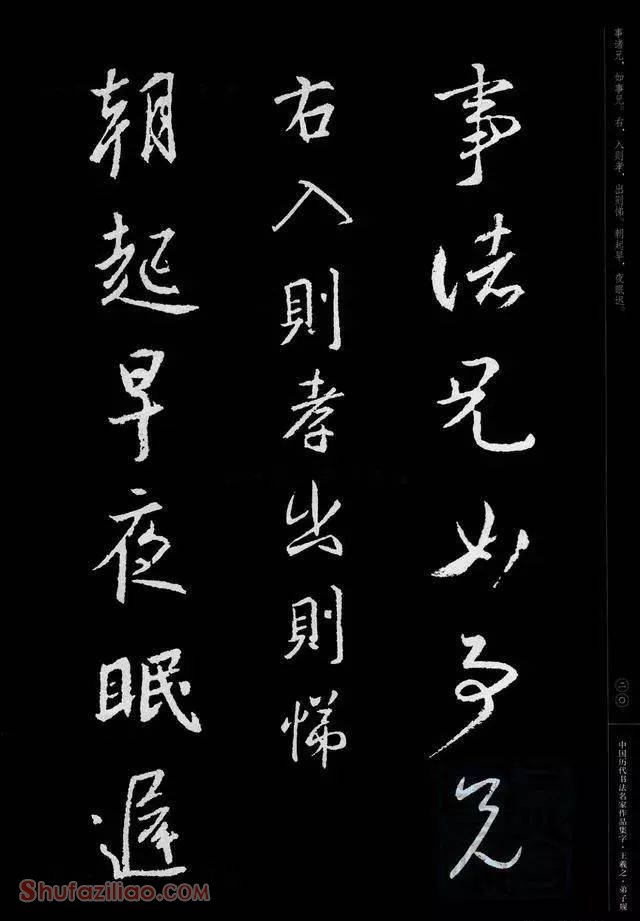 事诸兄，如事兄。右，入则孝，出则悌。朝起早，夜眠迟。
事诸兄如事兄
右入則孝出則悌
朝起早夜眠遲
二〇
中国历代书法名家作品集字·王羲之·弟子规
Shufaziliao.com